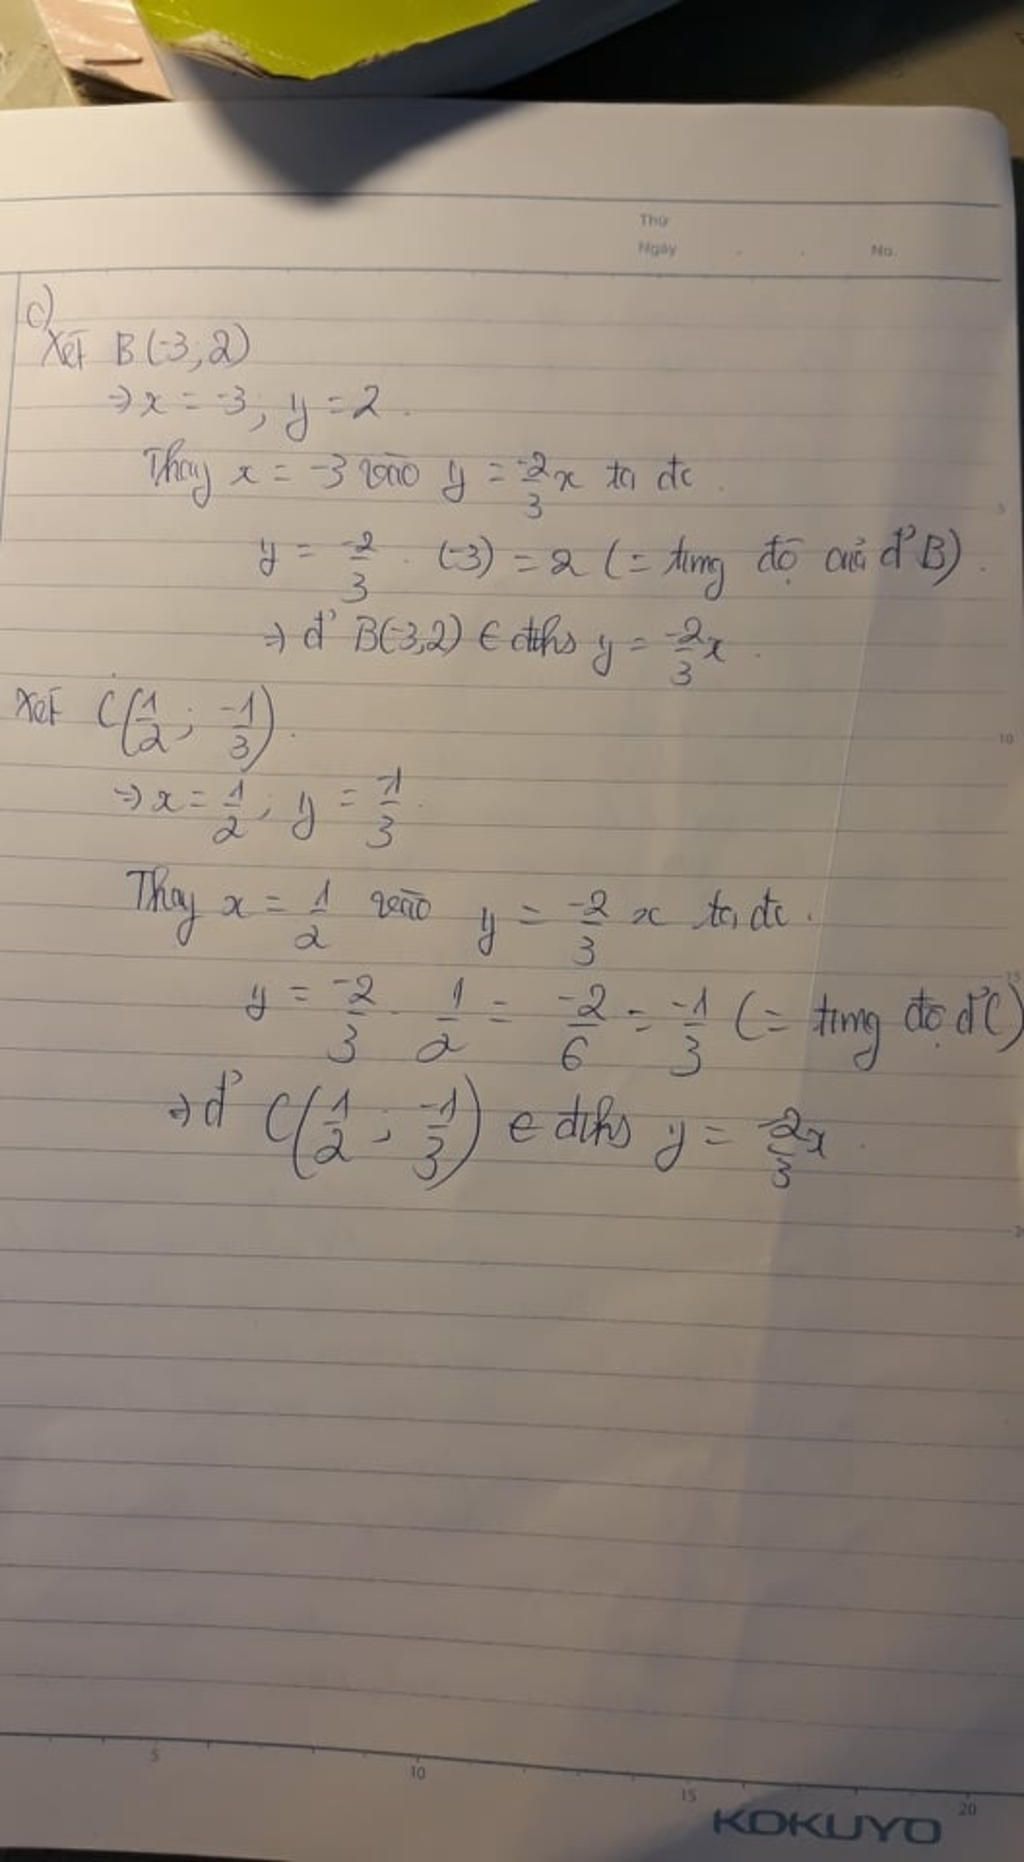 Thứ
Ngày . . No.
c)
Xét B(-3,2)
=> x = -3; y = 2.
Thay x = -3 vào y = -2/3 x ta đc.
y = -2/3 . (-3) = 2 (= tung độ của đ' B).
=> đ' B(-3,2) ∈ đths y = -2/3 x.
Xét C(1/2; -1/3).
=> x = 1/2; y = -1/3.
Thay x = 1/2 vào y = -2/3 x ta đc.
y = -2/3 . 1/2 = -2/6 = -1/3 (= tung độ đ' C)
=> đ' C(1/2; -1/3) ∈ đths y = -2/3 x.
5
10
15
5 10 15 20
KOKUYO